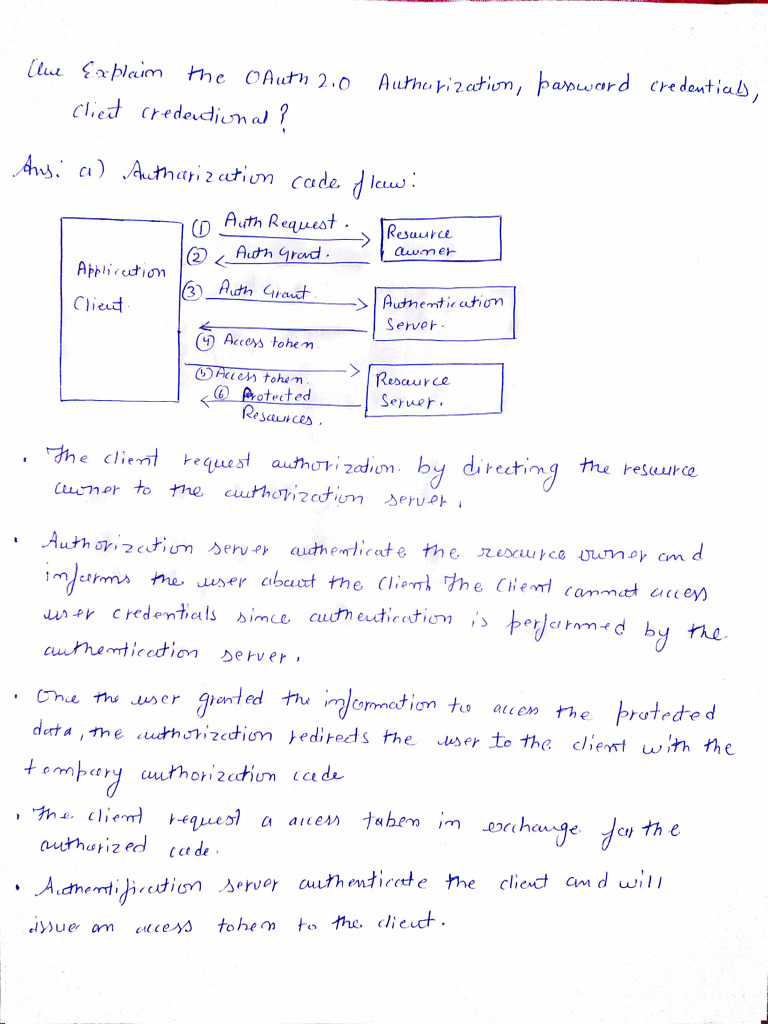 Que Explain the OAuth 2.0 Autharization, password credentials,
Client credentional?
Ans: a) Autharization code flaw:
① Auth Request.
Resaurce
awner
② Auth Grant.
Application
Client.
③ Auth Grant
Authentication
Server.
④ Access token
⑤ Access token.
Resaurce
Server.
⑥ Protected
Resaurces.
• The client request authorization. by directing the resaurce
awner to the authorization server.
• Authorization server authenticate the resaurce owner and
infarms the user abaut the Client. The Client cannat access
user credentials since authentication is perfarmed by the
authentication server.
• Once the user granted the information to access the protected
data, the authorization redirects the user to the client with the
tempary authorization cade
• The client request a access taken in exchange far the
autharized cade.
• Authentification server authenticate the client and will
issue an access token to the client.